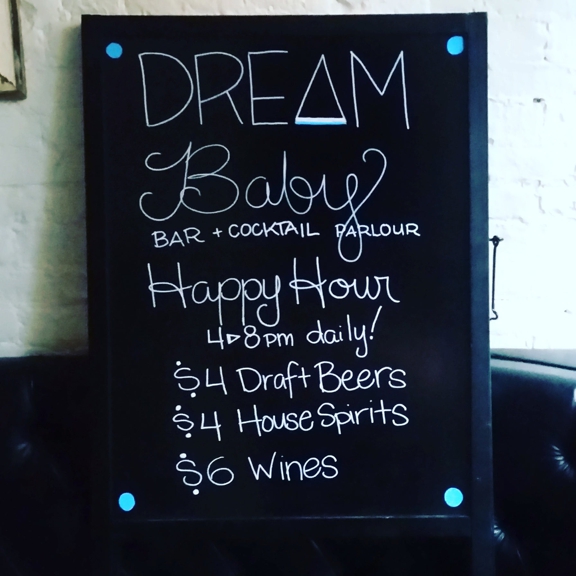 DREAM
Baby
BAR + COCKTAIL PARLOUR
Happy Hour
4▹8pm daily!
$4 Draft Beers
$4 House Spirits
$6 Wines